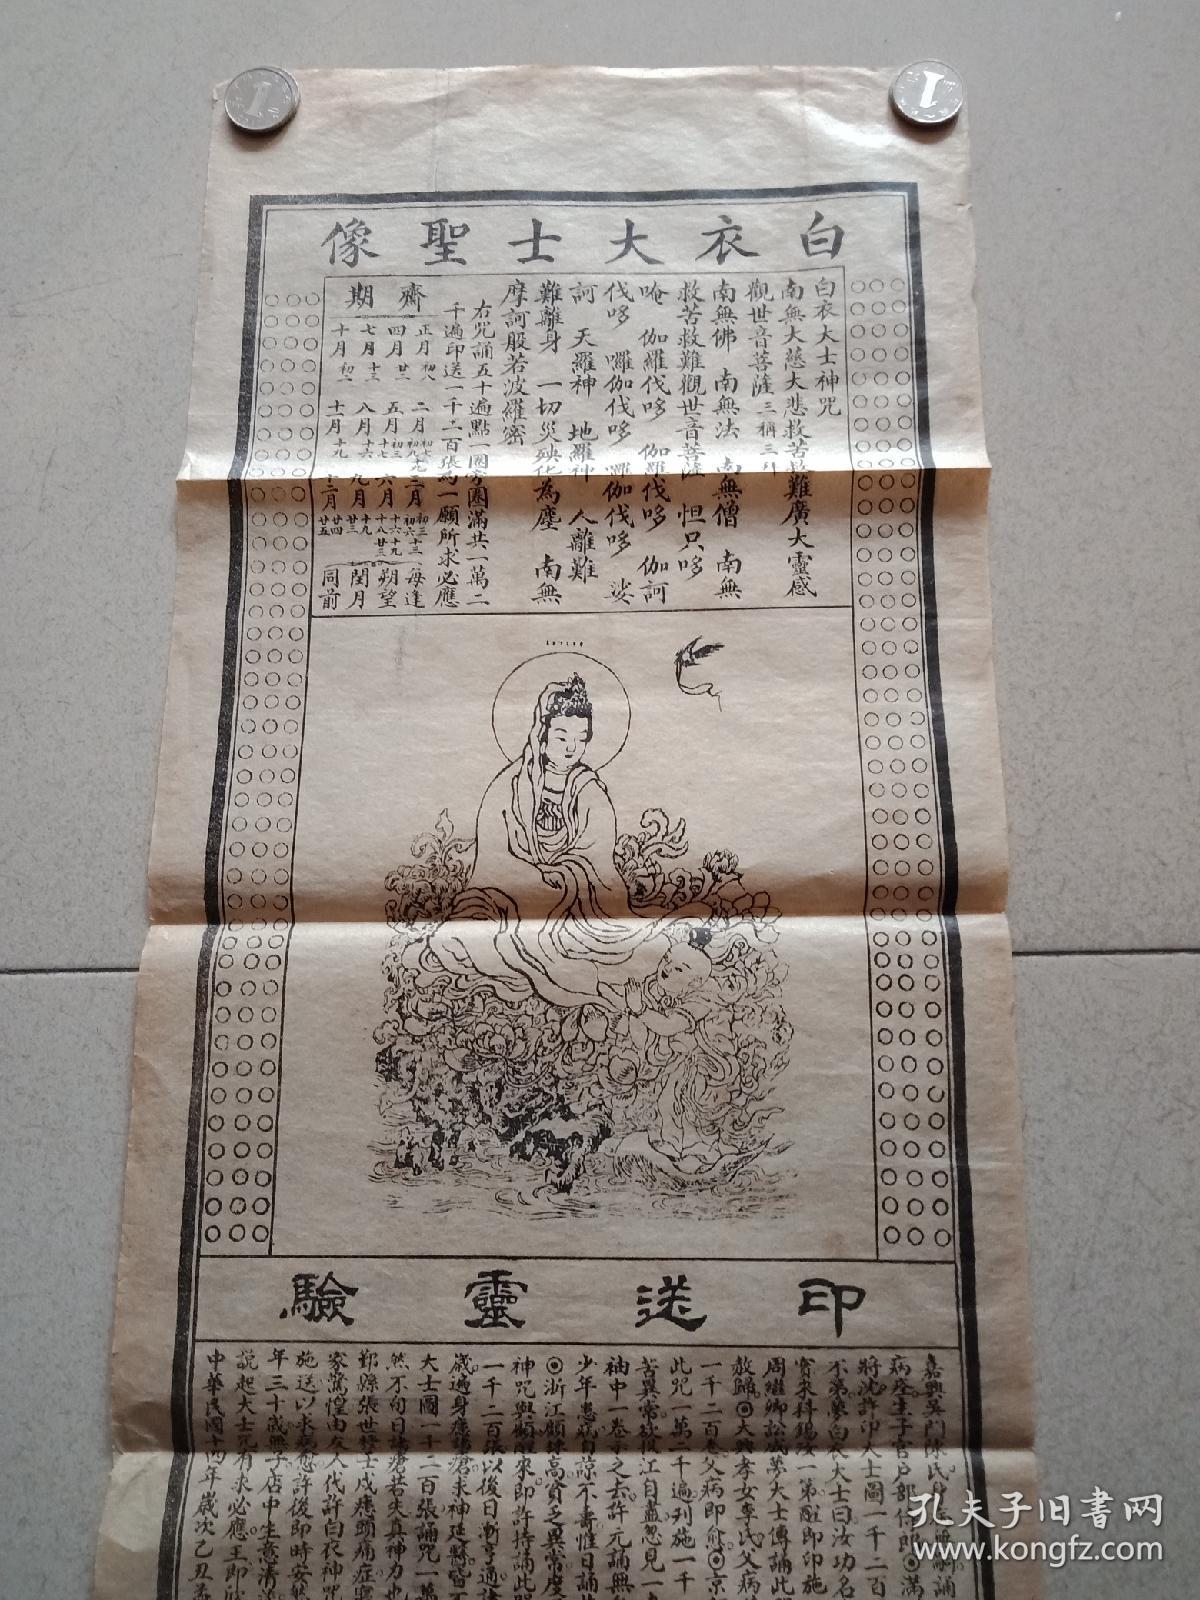 白衣大士聖像
白衣大士神咒
南無大慈大悲救苦救難廣大靈感
觀世音菩薩三稱三拜
南無佛 南無法 南無僧 南無
救苦救難觀世音菩薩 怛只哆
唵 伽羅伐哆 伽羅伐哆 伽訶
伐哆 囉伽伐哆 囉伽伐哆 娑
訶 天羅神 地羅神 人離難
難離身 一切災殃化為塵 南無
摩訶般若波羅密
右咒誦五十遍點一圈方圈滿共一萬二
千遍印送一千二百張為一願所求必應
齋期
正月初八 二月初七初九十九 三月初三初六十三 每逢
四月廿二 五月初三十七 六月十六十八十九廿三 朔望
七月十三 八月十六 九月十九廿三 閏月
十月初二 十一月十九 十二月廿四廿五 同前
印送靈驗
嘉興吳門陳氏
病痊生子官戶部侍郎◎滿
將沈許印大士圖一千二百
不第夢白衣大士曰汝功名
實來科錫汝一第醒即印施
周繼卿訟咸夢大士傳誦此
赦歸◎大興孝女李氏父病
一千二百卷父病即愈◎京
此咒一萬二千遍刋施一千
苦異常欲投江自盡忽見一
袖中一卷言之去許元誦無
少年患病自諒不壽惟日誦
◎浙江顧 高貧乏異常虔
神咒與顧醒來即許持誦此
一千二百張以後日漸亨通
歲遍身痣 瘡求神延醫皆不
大士圖一千二百張誦咒一萬
然不旬日 瘡若失真神力也
鄞縣張世 士戊痣頭痛症
家驚惶由友人代許白衣神咒
施送以求病愈許後即時安然
年三十歲無子店中生意清淡
說起大士咒有求必應王即欣
中華民國十四年歲次乙丑孟
孔夫子旧书网
www.kongfz.com